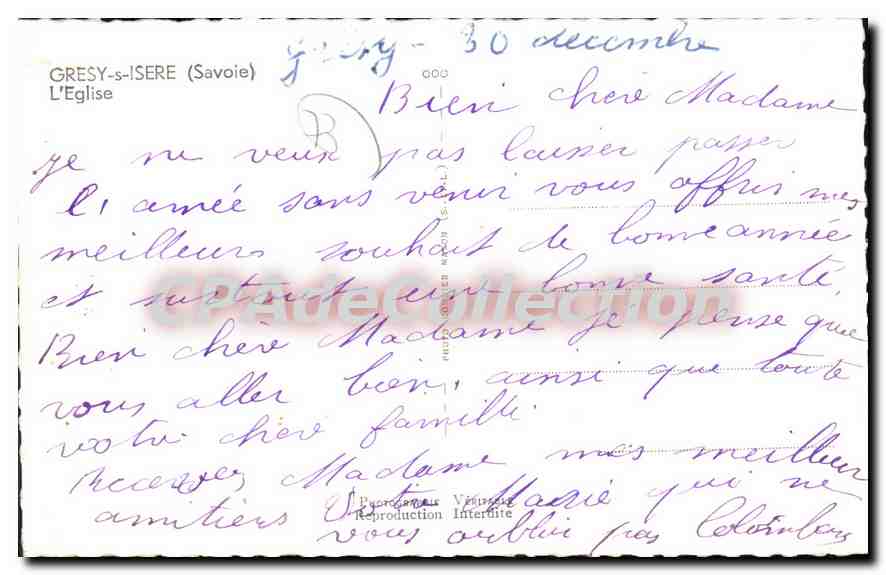 Gresy - 30 decembre
GRESY-s-ISERE (Savoie)
L'Eglise
Bien chère Madame
B
je ne veux pas laisser passer
l, année sans venir vous offrir mes
meilleurs souhait de bonne année
et surtout une bonne santé.
CPAdeCollection
Bien chère Madame je pense que
vous aller bien, ainsi que toute
votre chère famille
Recevez Madame mes meilleur
amitiers Votre Marie qui ne
vous oublie pas
PHOTOGRAPHIE VÉRITABLE
Reproduction Interdite